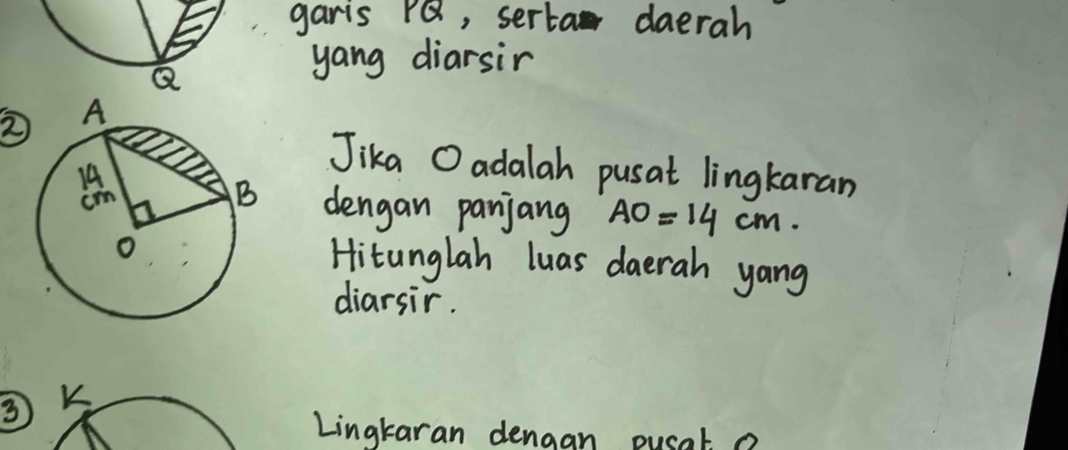 garis PQ, serta daerah
yang diarsir
Q
2
A
14
cm
B
O
Jika O adalah pusat lingkaran
dengan panjang AO = 14 cm.
Hitunglah luas daerah yang
diarsir.
3
K
Lingkaran dengan pusat O